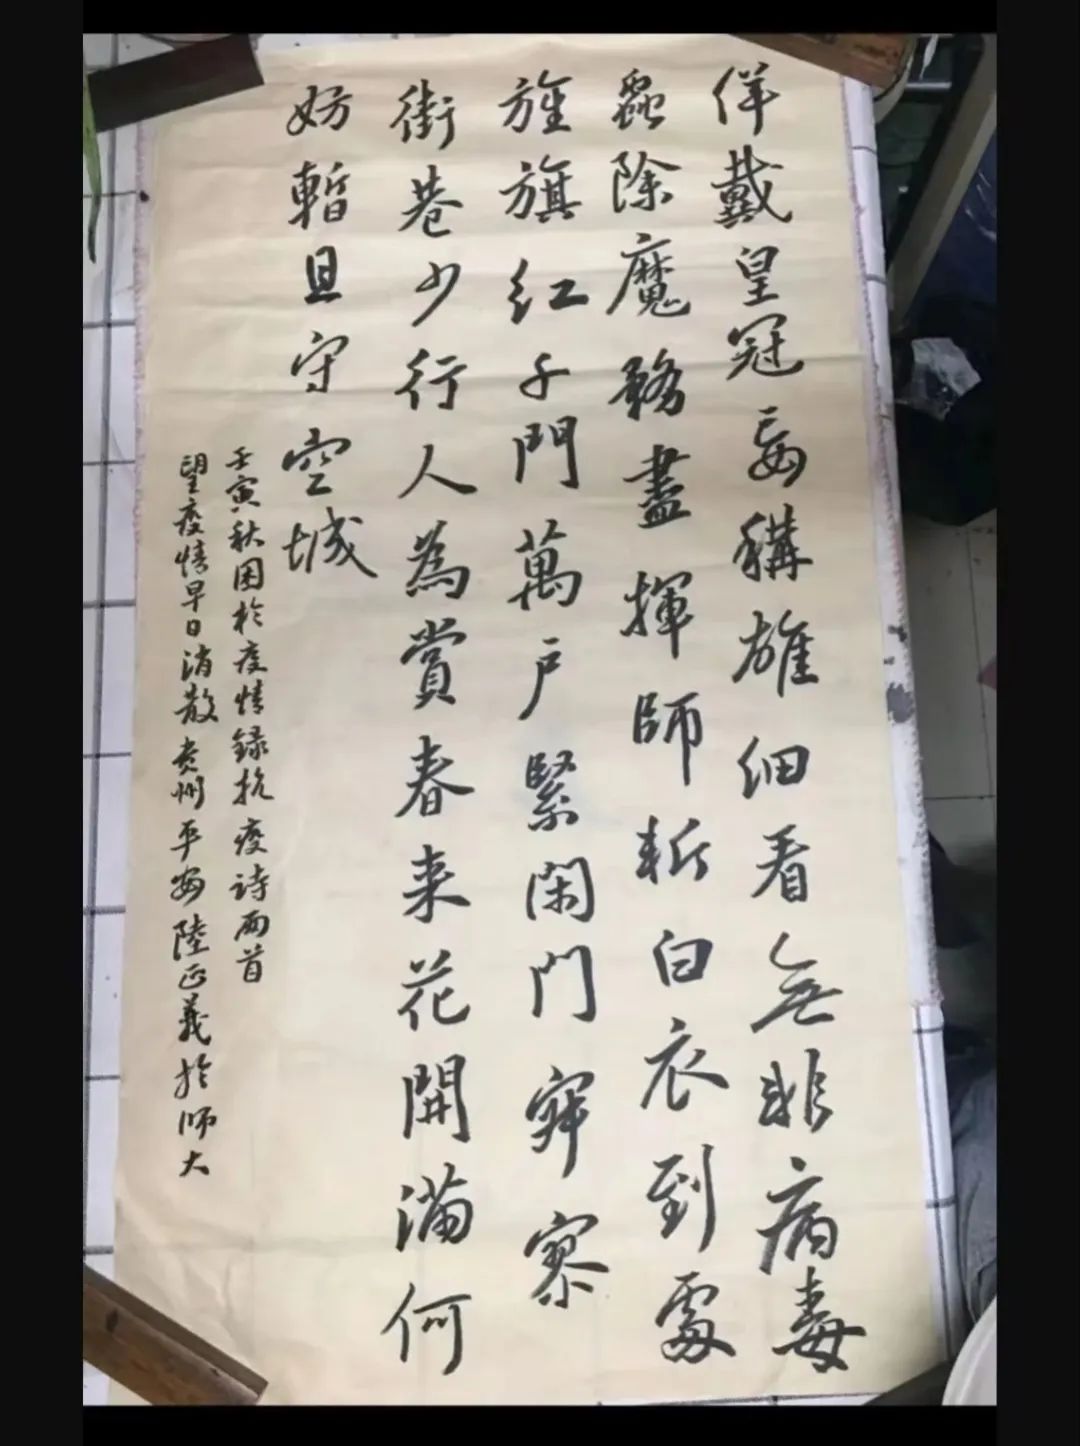 佯戴皇冠妄稱雄細看無非病毒
蟲除魔務盡揮師斬白衣到處
旌旗紅千門萬戶緊閑門寂寥
街巷少行人為賞春来花開滿何
妨暫且守空城
壬寅秋困於疫情録抗疫诗两首
望疫情早日消散贵州平安陸正義於师大